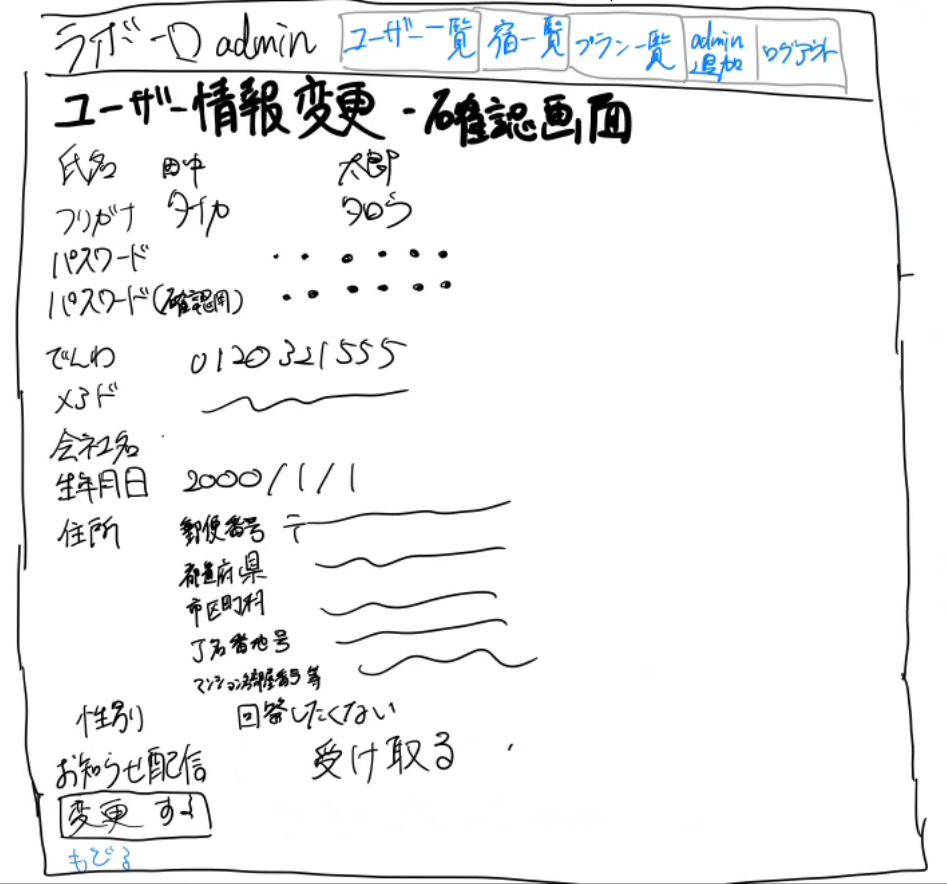 ラボーロ admin ユーザー一覧 宿一覧 プラン一覧 admin追加 ログアウト
ユーザー情報変更 - 確認画面
氏名 田中 太郎
フリガナ タナカ タロウ
パスワード ・・・・・・
パスワード(確認用) ・・・・・・
でんわ 0120321555
メアド
会社名
生年月日 2000/1/1
住所 郵便番号 〒
都道府県
市区町村
丁名番地号
マンション名部屋番号等
性別 回答したくない
お知らせ配信 受け取る
変更する
もどる